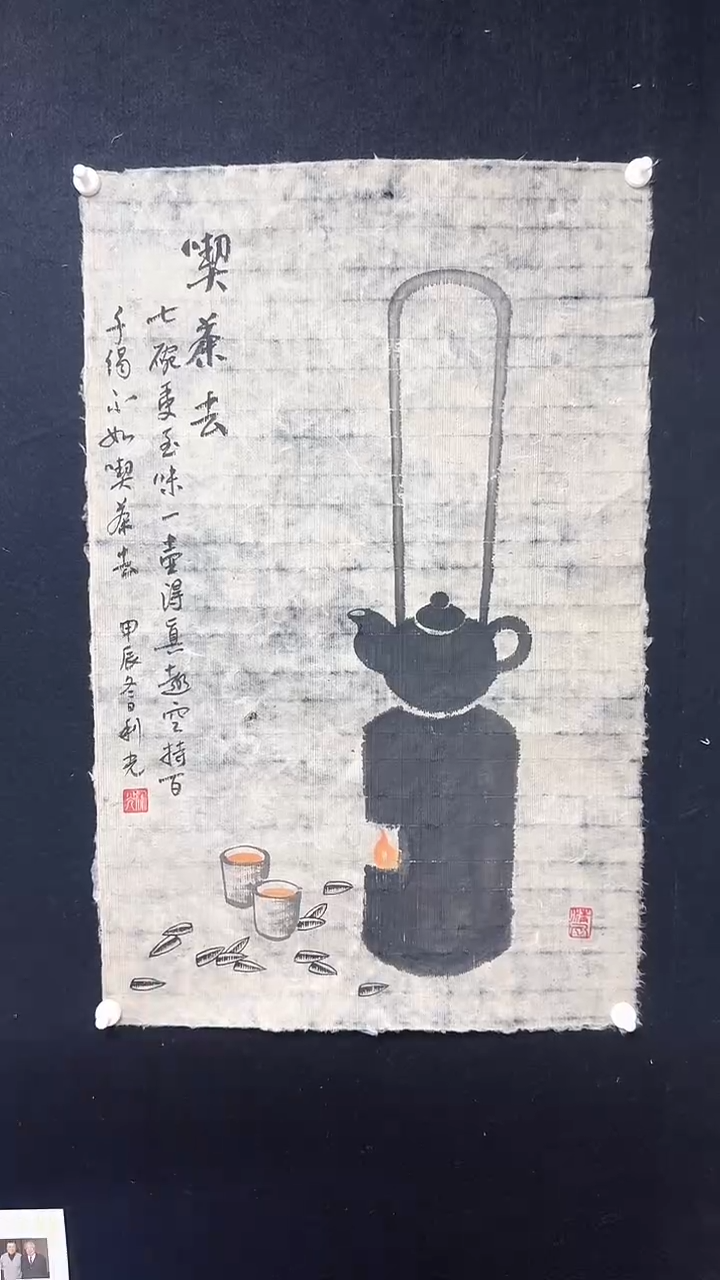 喫茶去
七碗受至味一壺得眞趣空持百
千偈不如喫茶去
甲辰冬日利光